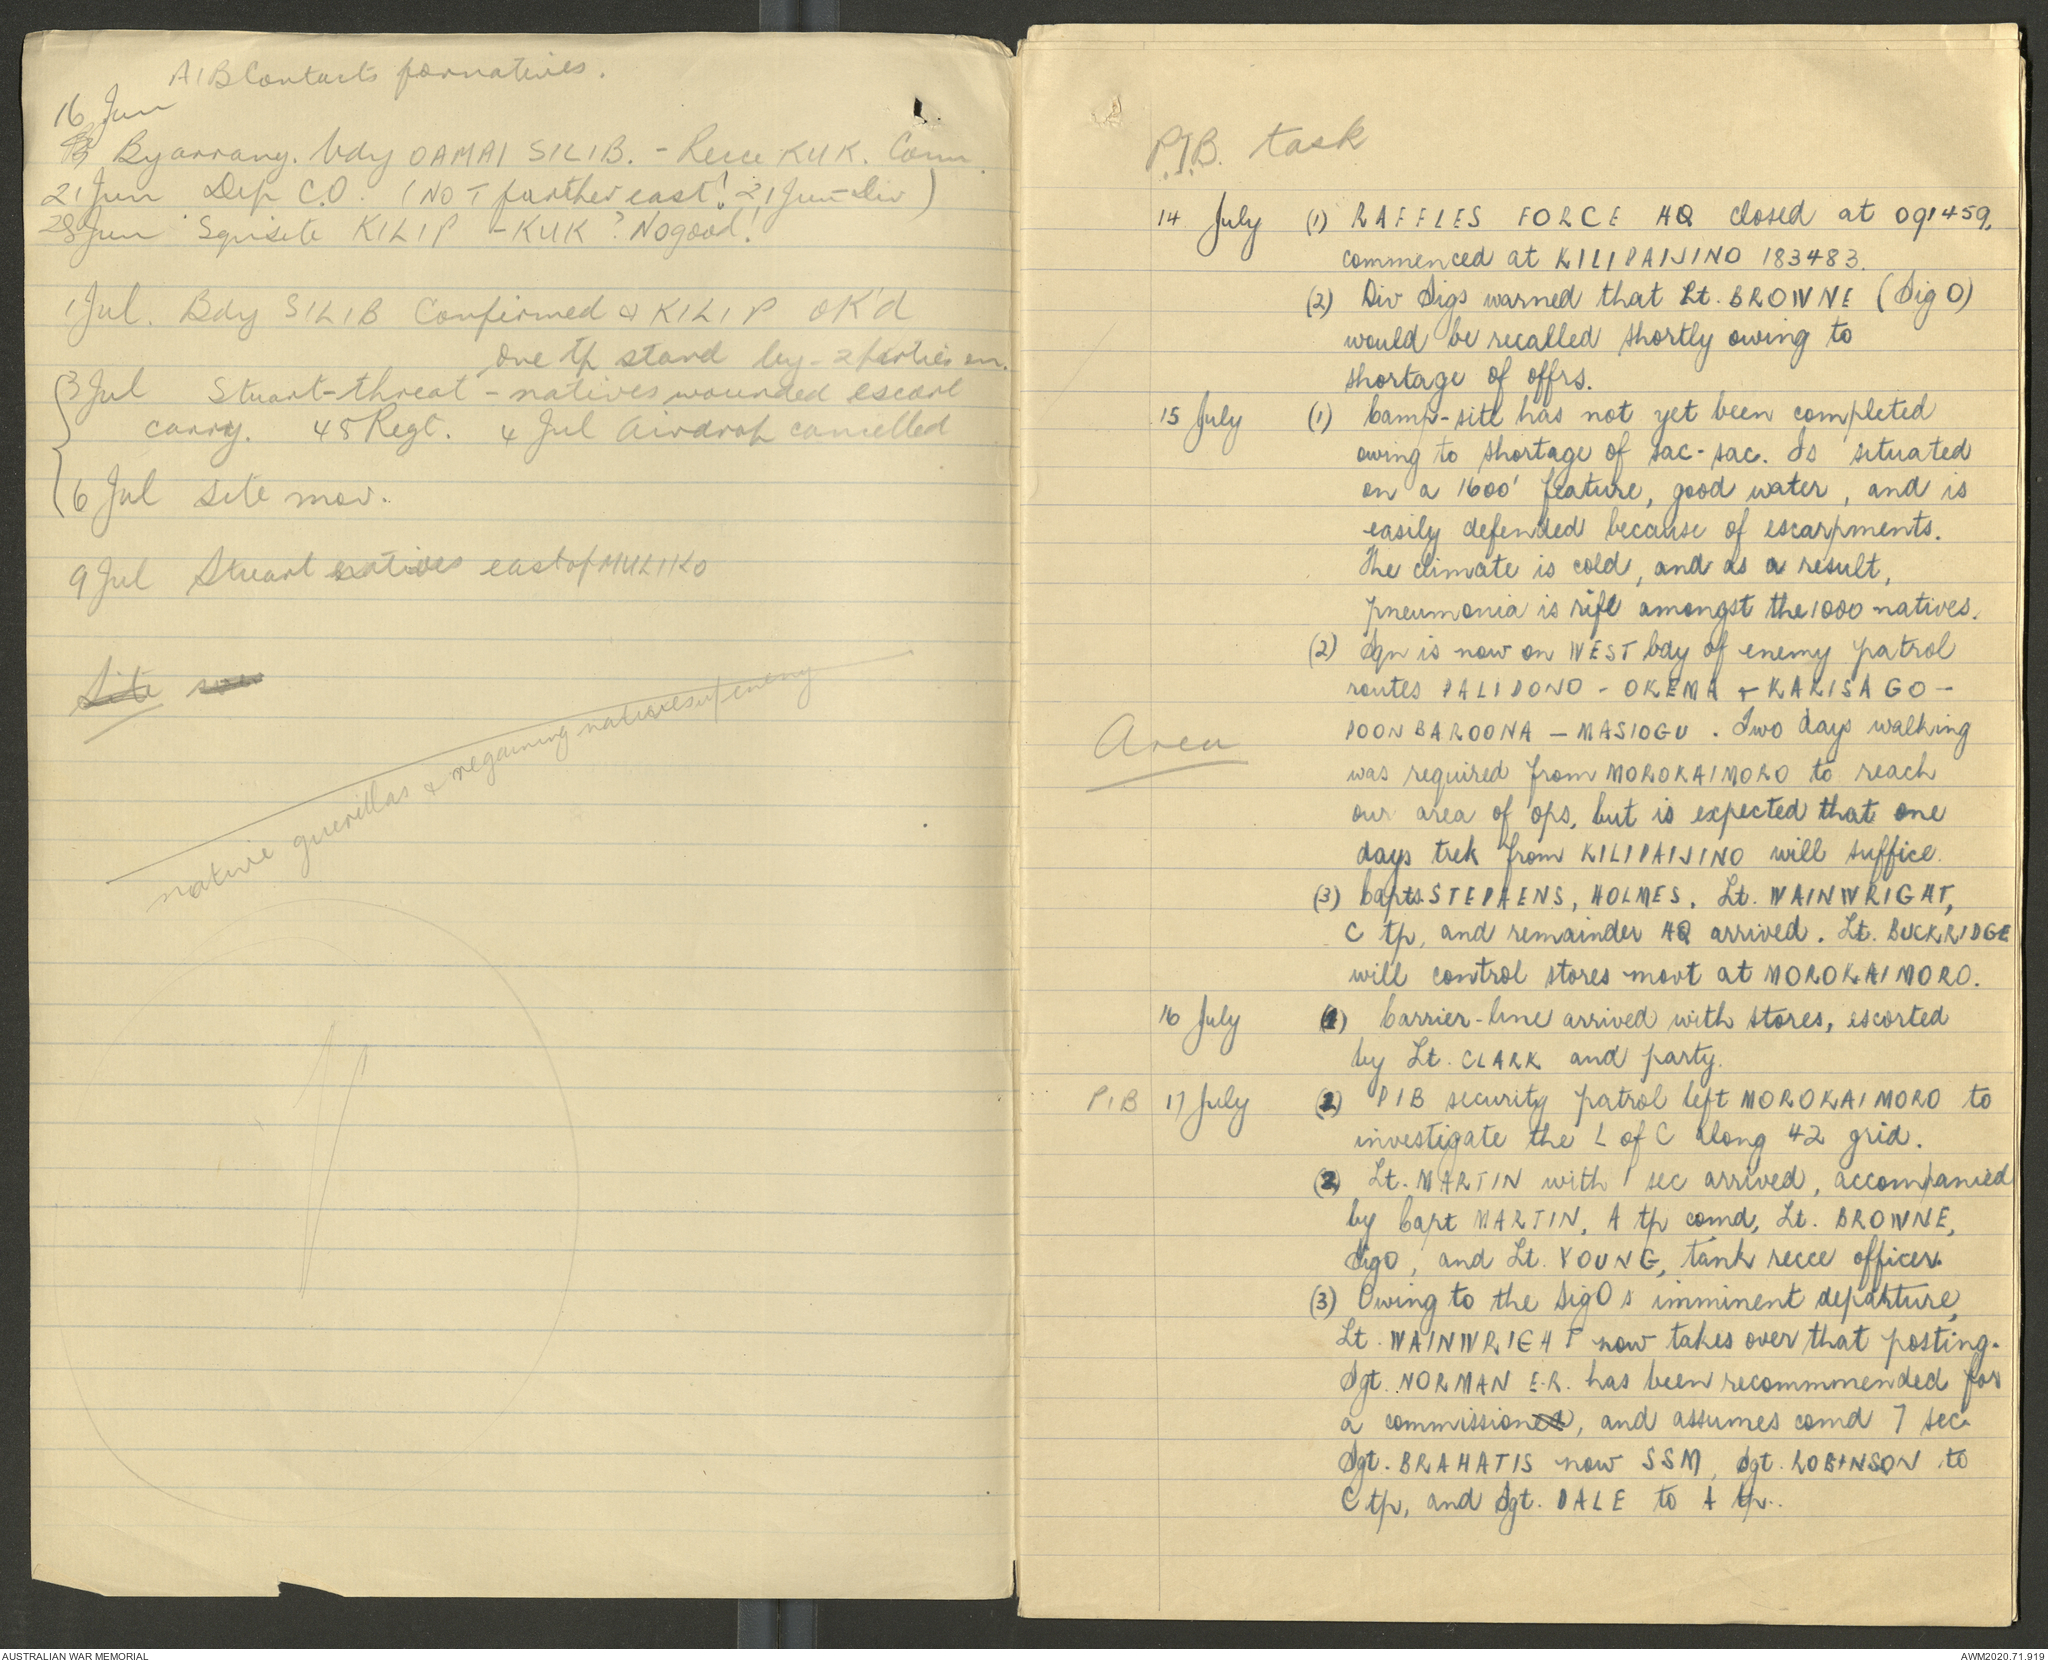 AIB Contacts for natives.
16 Jun
By arrang. bdy OAMAI SILIB. - Recce KUK. Comm
21 Jun Dep C.O. (NOT further east! 21 Jun - Div)
28 Jun Sqn site KILIP - KUK? No good!
1 Jul. Bdy SILIB Confirmed & KILIP OK'd
One tp stand by - 2 parties
3 Jul Stuart - threat - natives wounded escort
carry. 45 Regt. 4 Jul Airdrop cancelled
6 Jul site mov.
9 Jul Stuart natives east of MULIKO
Site
native guerillas & regaining natives of enemy
P.I.B. task
14 July (1) RAFFLES FORCE HQ closed at 091459,
commenced at KILIPAIJINO 183483.
(2) Div Sigs warned that Lt. BROWNE (Sig O)
would be recalled shortly owing to
shortage of offrs.
15 July (1) Camp-site has not yet been completed
owing to shortage of sac-sac. Is situated
on a 1600' feature, good water, and is
easily defended because of escarpments.
The climate is cold, and as a result,
pneumonia is rife amongst the 1000 natives.
(2) Sqn is now on WEST bdy of enemy patrol
routes PALIPONO - OKEMA & KAKISAGO -
POONBAROONA - MASIOGU. Two days walking
Area
was required from MOROKAIMORO to reach
our area of ops, but is expected that one
days trek from KILIPAIJINO will suffice.
(3) Capts. STEPHENS, HOLMES, Lt. WAINWRIGHT,
C tp, and remainder HQ arrived. Lt. BUCKRIDGE
will control stores movt at MOROKAIMORO.
16 July (1) Carrier-line arrived with stores, escorted
by Lt. CLARK and party.
PIB 17 July (1) PIB security patrol left MOROKAIMORO to
investigate the L of C along 42 grid.
(2) Lt. MARTIN with 1 sec arrived, accompanied
by Capt MARTIN, A tp comd, Lt. BROWNE,
SigO, and Lt. YOUNG, tank recce officer.
(3) Owing to the SigO s imminent departure,
Lt. WAINWRIGHT now takes over that posting.
Sgt. NORMAN E.R. has been recommmended for
a commission, and assumes comd 7 sec.
Sgt. BRAHATIS now SSM, Sgt. ROBINSON to
C tp, and Sgt. DALE to A tp.
AUSTRALIAN WAR MEMORIAL
AWM2020.71.919